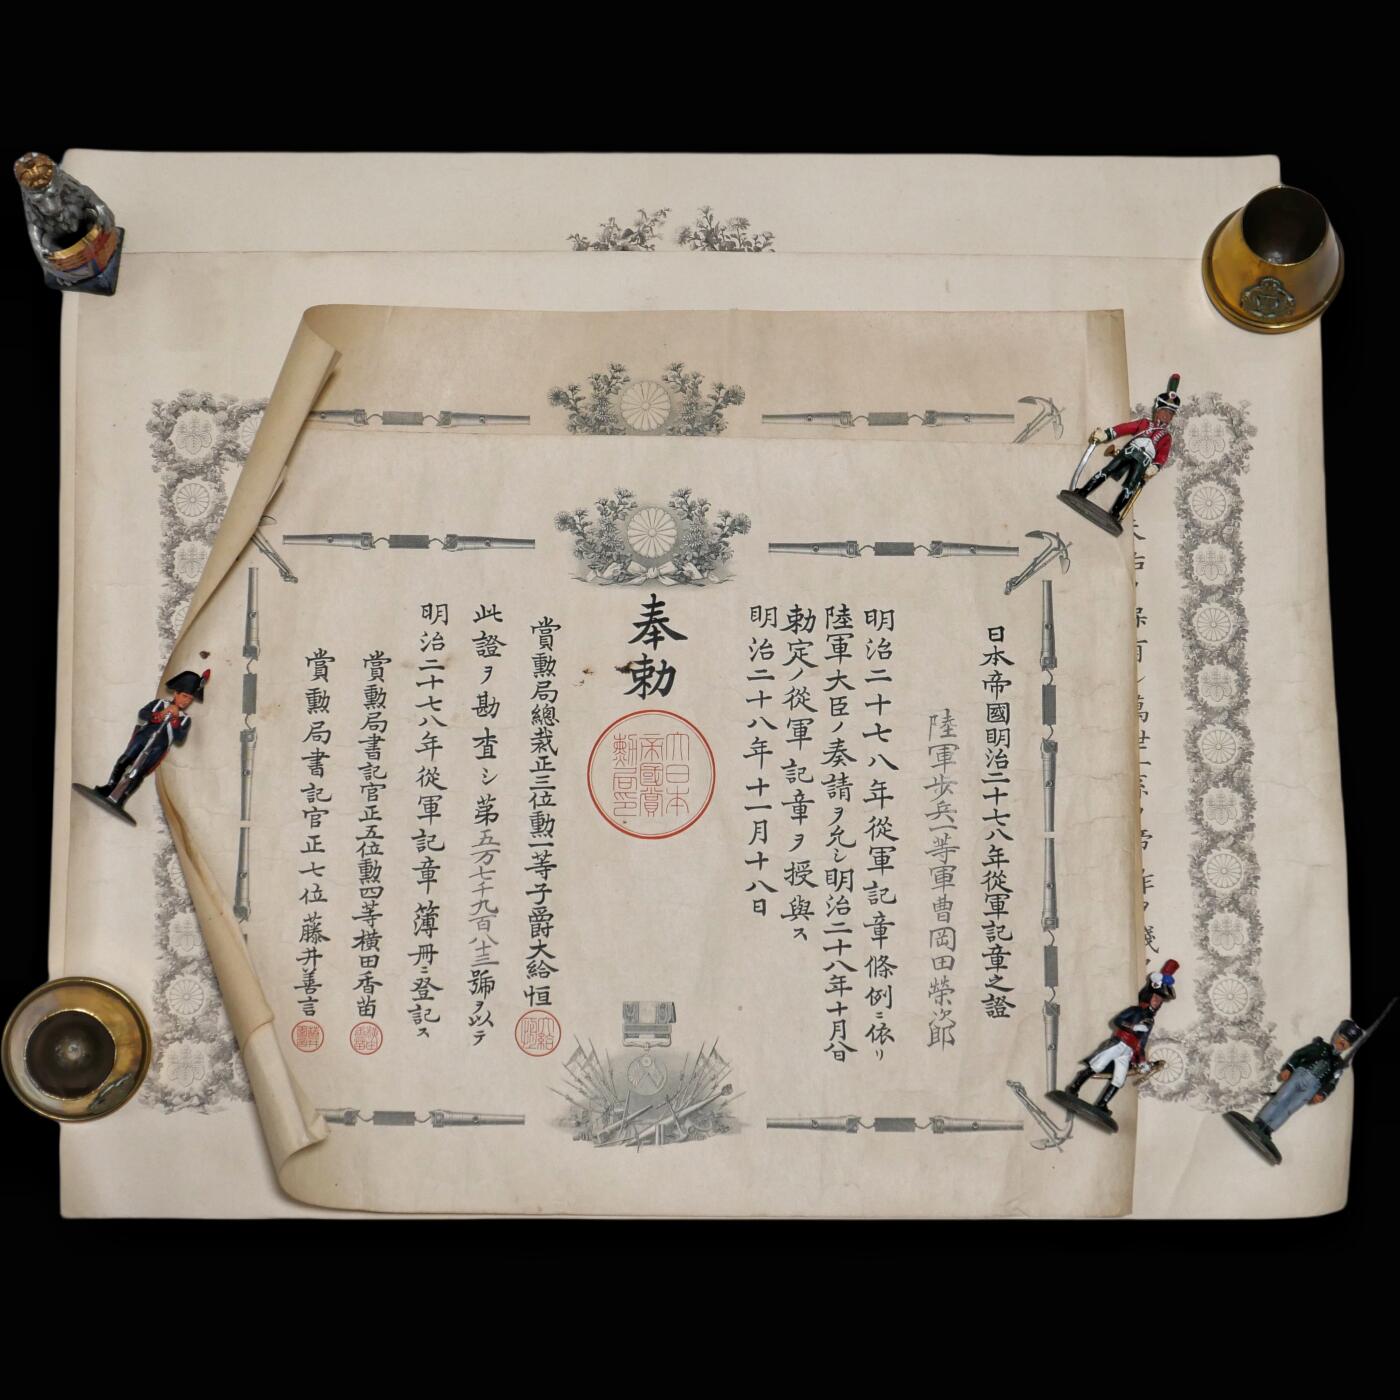 日本帝國明治二十七八年從軍記章之證
陸軍歩兵一等軍曹岡田榮次郎
明治二十七八年從軍記章條例ニ依リ
陸軍大臣ノ奏請ヲ允シ明治二十八年十月
勅定ノ從軍記章ヲ授與ス
明治二十八年十一月十八日
奉勅
大日本帝國賞勳局印
賞勲局總裁正三位勲一等子爵大給恒
此證ヲ勘査シ第五万七千九百八十三號ヲ以テ
明治二十七八年從軍記章簿冊ニ登記ス
賞勲局書記官正五位勲四等横田香苗
賞勲局書記官正七位藤井善言
萬世一系ノ帝